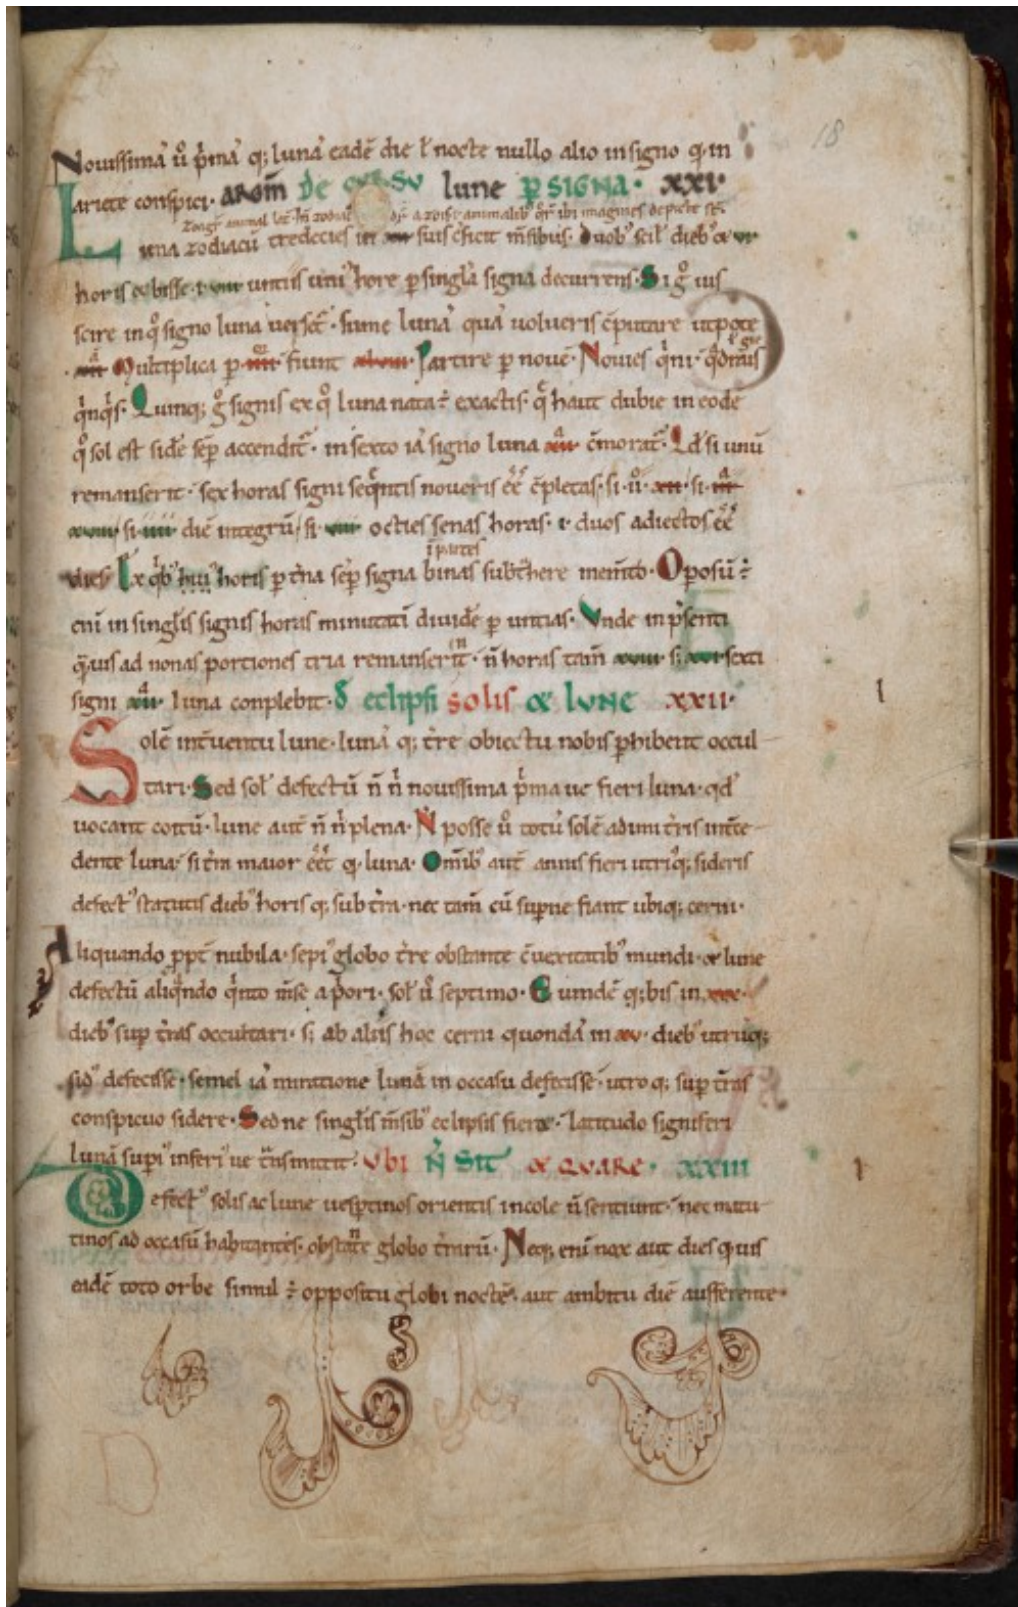 18
Nouissima' ů p̊ma' q; luna' eadē die ł nocte nullo alio insigno q in
ariete conspici. ARGM̄ DE CURSU lune p SIGNA. XXI.
Luna zodiacū tredecies in suis c̄ficit m̄sibus. Duob' scił dieb' & vi
horis & bisse .i. viii untiis uni' hore p singła signa decurrens. Si g̊ uis
scire in q̊ signo luna uerset̄. sume luna' qua' uolueris c̄putare utpote
Multiplica p iiii fiunt xlviii. Partire p nouē. Nouies q̇ni. q̇draies
q̇nq̇s. Quinq; g̊ signis ex q̊ luna nata ÷ exactis. q̊ haut dubie in eodē
q̊ sol est side sep accendit̄. in sexto ia' signo luna xii c̄morat̄. Qd' si unū
remanserit. sex horas signi seq̄ntis noueris ēē c̄pletas. si ů xii. si iii
xviii. si iiii diē integrū. si viii octies senas horas .i. duos adiectos ēē
dies. Ex q̇b' hui' horis p t̄na sep signa binas subt̄here mem̄to. Oposū ÷
i partes
enī in singłis signis horas minutati diuide p untias. Unde in p̄senti
q̄uis ad nonas portiones tria remanserit. n̄ horas tam̄ xviii s; xvi sexti
signi xii luna conplebit. D̄ eclipsi SOLIS & LVNE XXII.
Solē int̄uentu lune. luna' q; t̄re obiectu nobis phibent occul
tari. Sed soł defectū n̄ n̄ nouissima p̊ma ue fieri luna. qd'
uocant coitū. lune aut̄ n̄ n̄ plena. N̄ posse ů totū solē adimi t̄ris int̄ce
dente luna. si t̄ra maior ēēt q luna. Omīb' aut̄ annis fieri utriq; sideris
defect' statutis dieb' horis q; sub t̄ra. nec tam̄ cū supne fiant ubiq; cerni.
Aliquando ppt̄ nubila. sepi' globo t̄re obstante c̄uexitatib' mundi. & lune
defectū aliq̄ndo q̇nto m̄se a p̊ori. soł ů septimo. Eundē q; bis in xxx
dieb' sup t̄ras occultari. s; ab aliis hoc cerni quonda' in xv dieb' utrūq;
sid' defecisse. semel ia' miratione lunā in occasu defecisse. utro q; sup t̄ras
conspicuo sidere. Sed ne singłis m̄sib' eclipsis fieret. latitudo signiferi
lunā supi' inferi' ue t̄nsmittit. VBI N̄ SIT & QVARE. XXIII
Defect' solis ac lune uesptinos orientis incole n̄ sentiunt. nec matu
tinos ad occasū habitantes. obstante globo t̄rarū. Neq; enī nox aut dies q̄uis
eadē toto orbe simul ÷ oppositu globi noctē. aut ambitu diē aufferente.